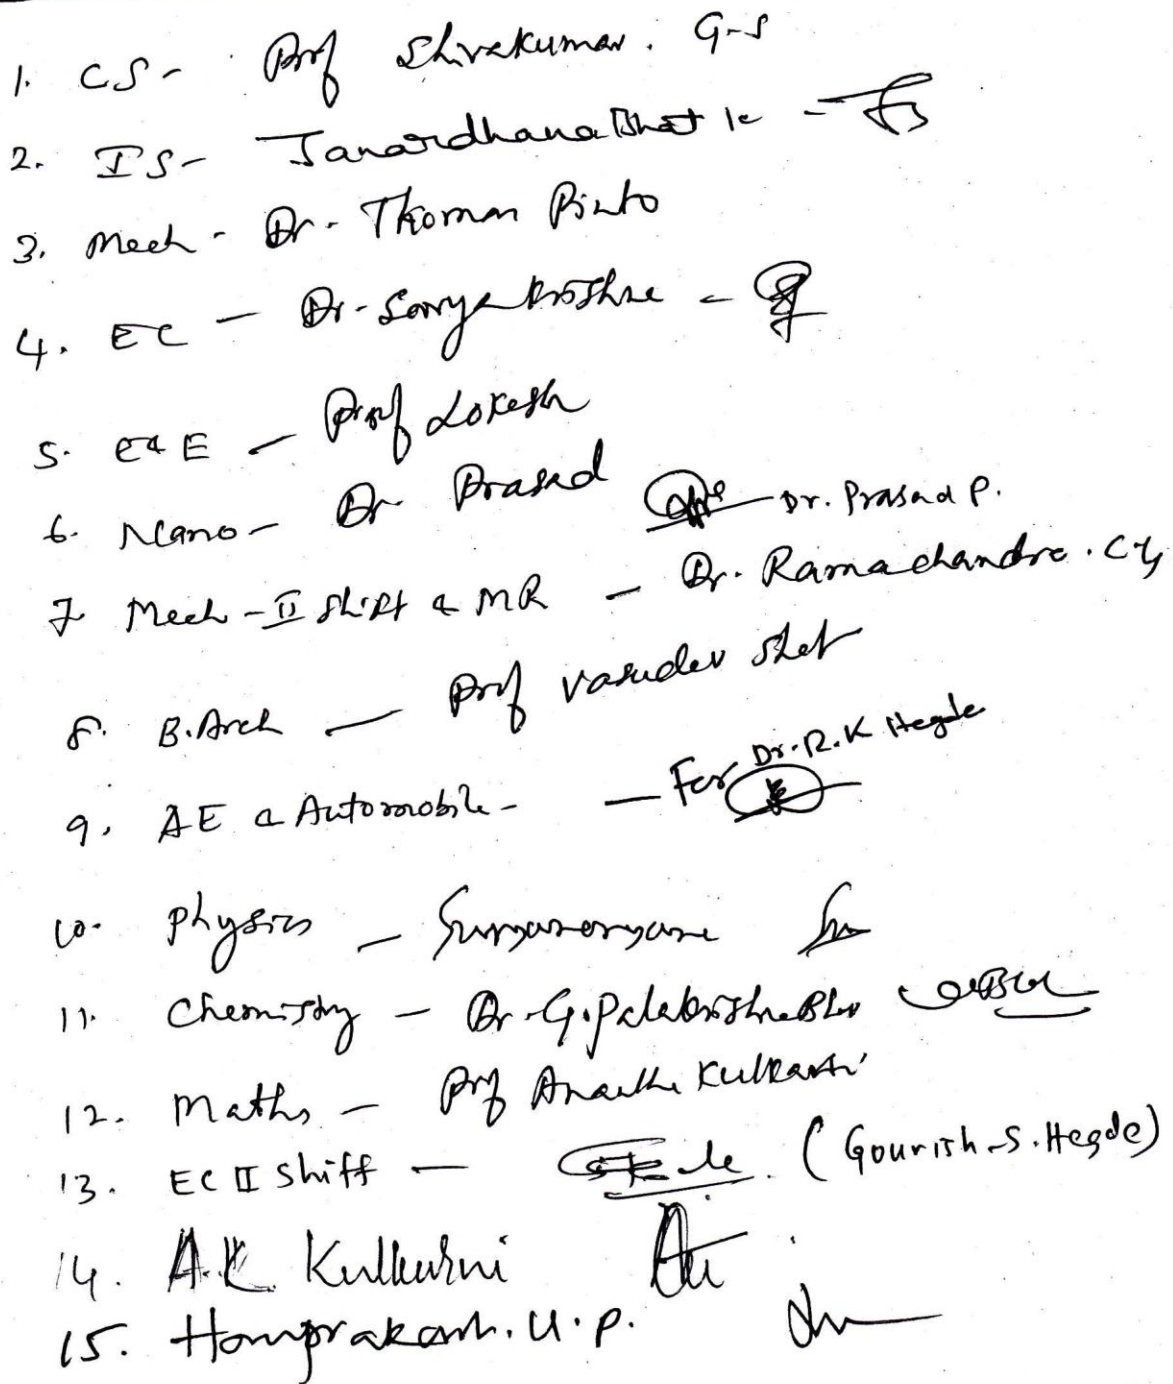 1. CS - Prof Shivakumar. G-S
2. IS - Janardhana Bhat K -
3. Mech - Dr. Thomas Pinto
4. EC - Dr. Soorya Krishna -
5. E&E - Prof Lokesh
6. Nano - Dr Prasad - Dr. Prasad P.
7. Mech - II Shift & MR - Dr. Ramachandra. C G
8. B.Arch - Prof Vasudev Shet
9. AE & Automobile - - For Dr. R.K Hegde
10. Physics - Suryanarayana
11. Chemistry - Dr. Gopalakrishna Bhat
12. Maths - Prof Anantha Kulkarni
13. EC II Shift - (Gourish.S.Hegde)
14. A.K Kulkurni
15. Homprakash. U.P.